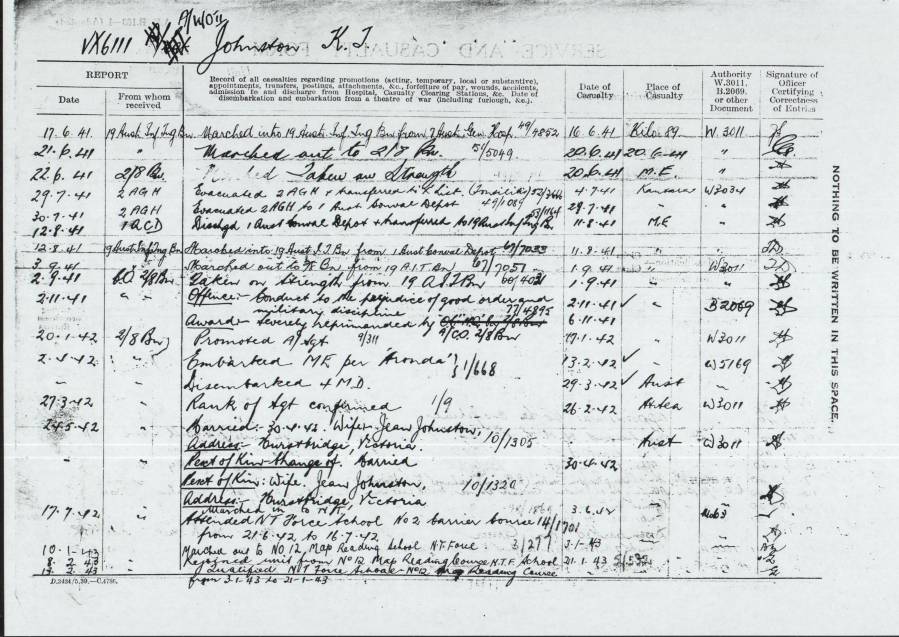 VX6111 A/WO II Johnston K. J
REPORT
Date
From whom received
Record of all casualties regarding promotions (acting, temporary, local or substantive),
appointments, transfers, postings, attachments, &c., forfeiture of pay, wounds, accidents,
admission to and discharge from Hospital, Casualty Clearing Stations, &c. Date of
disembarkation and embarkation from a theatre of war (including furlough, &c.).
Date of Casualty
Place of Casualty
Authority W.3011, B.2069. or other Document
Signature of Officer Certifying Correctness of Entries
17.6.41 19 Aust Inf Tng Bn Marched into 19 Aust. Inf. Tng Bn from 7 Aust. Gen Hosp. 49/4852 16.6.41 Kilo 89 W.3011
21.6.41 " Marched out to 2/8 Bn. 51/5049 20.6.41 "
22.6.41 2/8 Bn. Taken on Strength 20.6.41 M.E. "
29.7.41 2 AGH Evacuated 2 AGH & transferred to X List (Tonsilitis) 4.7.41 Kantara W3034
30.7.41 2 AGH Evacuated 2 AGH to 1 Aust Conval Depot 49/1089 29.7.41 " "
12.8.41 1 ACD Dischgd 1 Aust Conval Depot & transferred to 19 Aust Inf Tng Bn 53/1164 11.8.41 M.E "
12.8.41 19 Aust Inf Tng Bn Marched into 19 Aust I.T Bn from 1 Aust Conval Depot 67/7033 11.8.41 " "
3.9.41 " Marched out to 2/8 Bn from 19 A.I.T Bn 67/7051 1.9.41 " W3011
2.9.41 C.O 2/8 Bn Taken on Strength from 19 A I T Bn 66/4031 1.9.41 " "
2.11.41 " " Offence:- Conduct to the prejudice of good order and
military discipline 77/4895 2.11.41 " B2069
Award - Severely reprimanded by A/C.O. 2/8 Bn 6.11.41
20.1.42 2/8 Bn Promoted A/Sgt 9/311 17.1.42 " W3011
2.4.42 " Embarked ME per 1/668 13.2.42 " W5169
" " Disembarked 4 M.D. 29.3.42 Aust "
27.3.42 " Rank of Sgt confirmed 1/9 26.2.42 At sea W3011
24.5.42 " Married:- 30.4.42. Wife:- Jean Johnston,
Address:- Hurstbridge, Victoria. 10/1305 Aust W3011
" " Next of Kin - Change of. Married 30.4.42
Next of Kin: Wife. Jean Johnston, 10/1320
Address:- Hurstbridge, Victoria
Marched in to N.T. 3.6.42
17.7.42 " Attended NT Force School No 2 Carrier Course 14/1701
from 21.6.42 to 16.7.42
10.1.43 " Marched out to No 12, Map Reading School N.T. Force. 3/277 3.1.43
8.2.43 " Rejoined unit from No 12 Map Reading Course N.T.F. School 21.1.43
" Qualified N T Force School - No 12 Map Reading Course
from 3.1.43 to 21.1.43
D.2484/5,39.—C.4736.
NOTHING TO BE WRITTEN IN THIS SPACE.